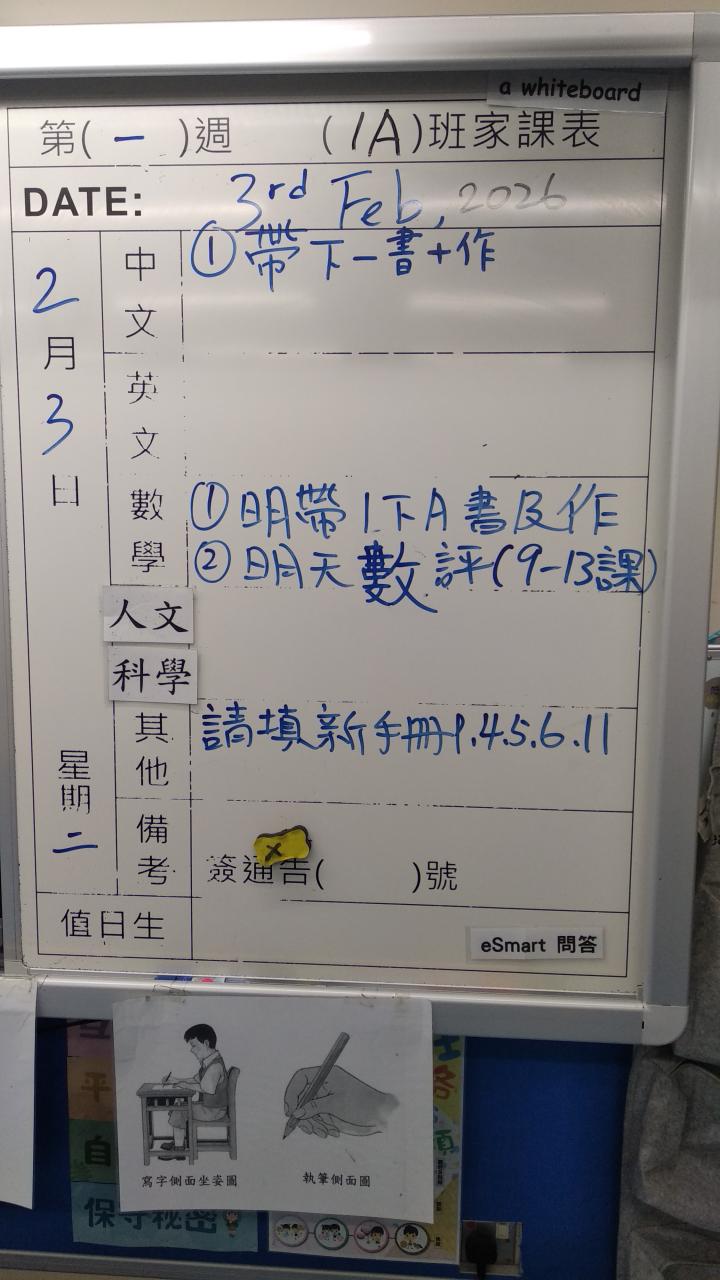 a whiteboard
第(一)週 (1A)班家課表
DATE: 3rd Feb, 2026
2月3日
星期二
中文
①帶下一書+作
英文
數學
①明帶1下A書及作
②明天數評(9-13課)
人文
科學
其他
請填新手冊P.4.5.6.11
備考
簽通告( )號
x
值日生
eSmart 問答
寫字側面坐姿圖
執筆側面圖
平
自
保守秘密